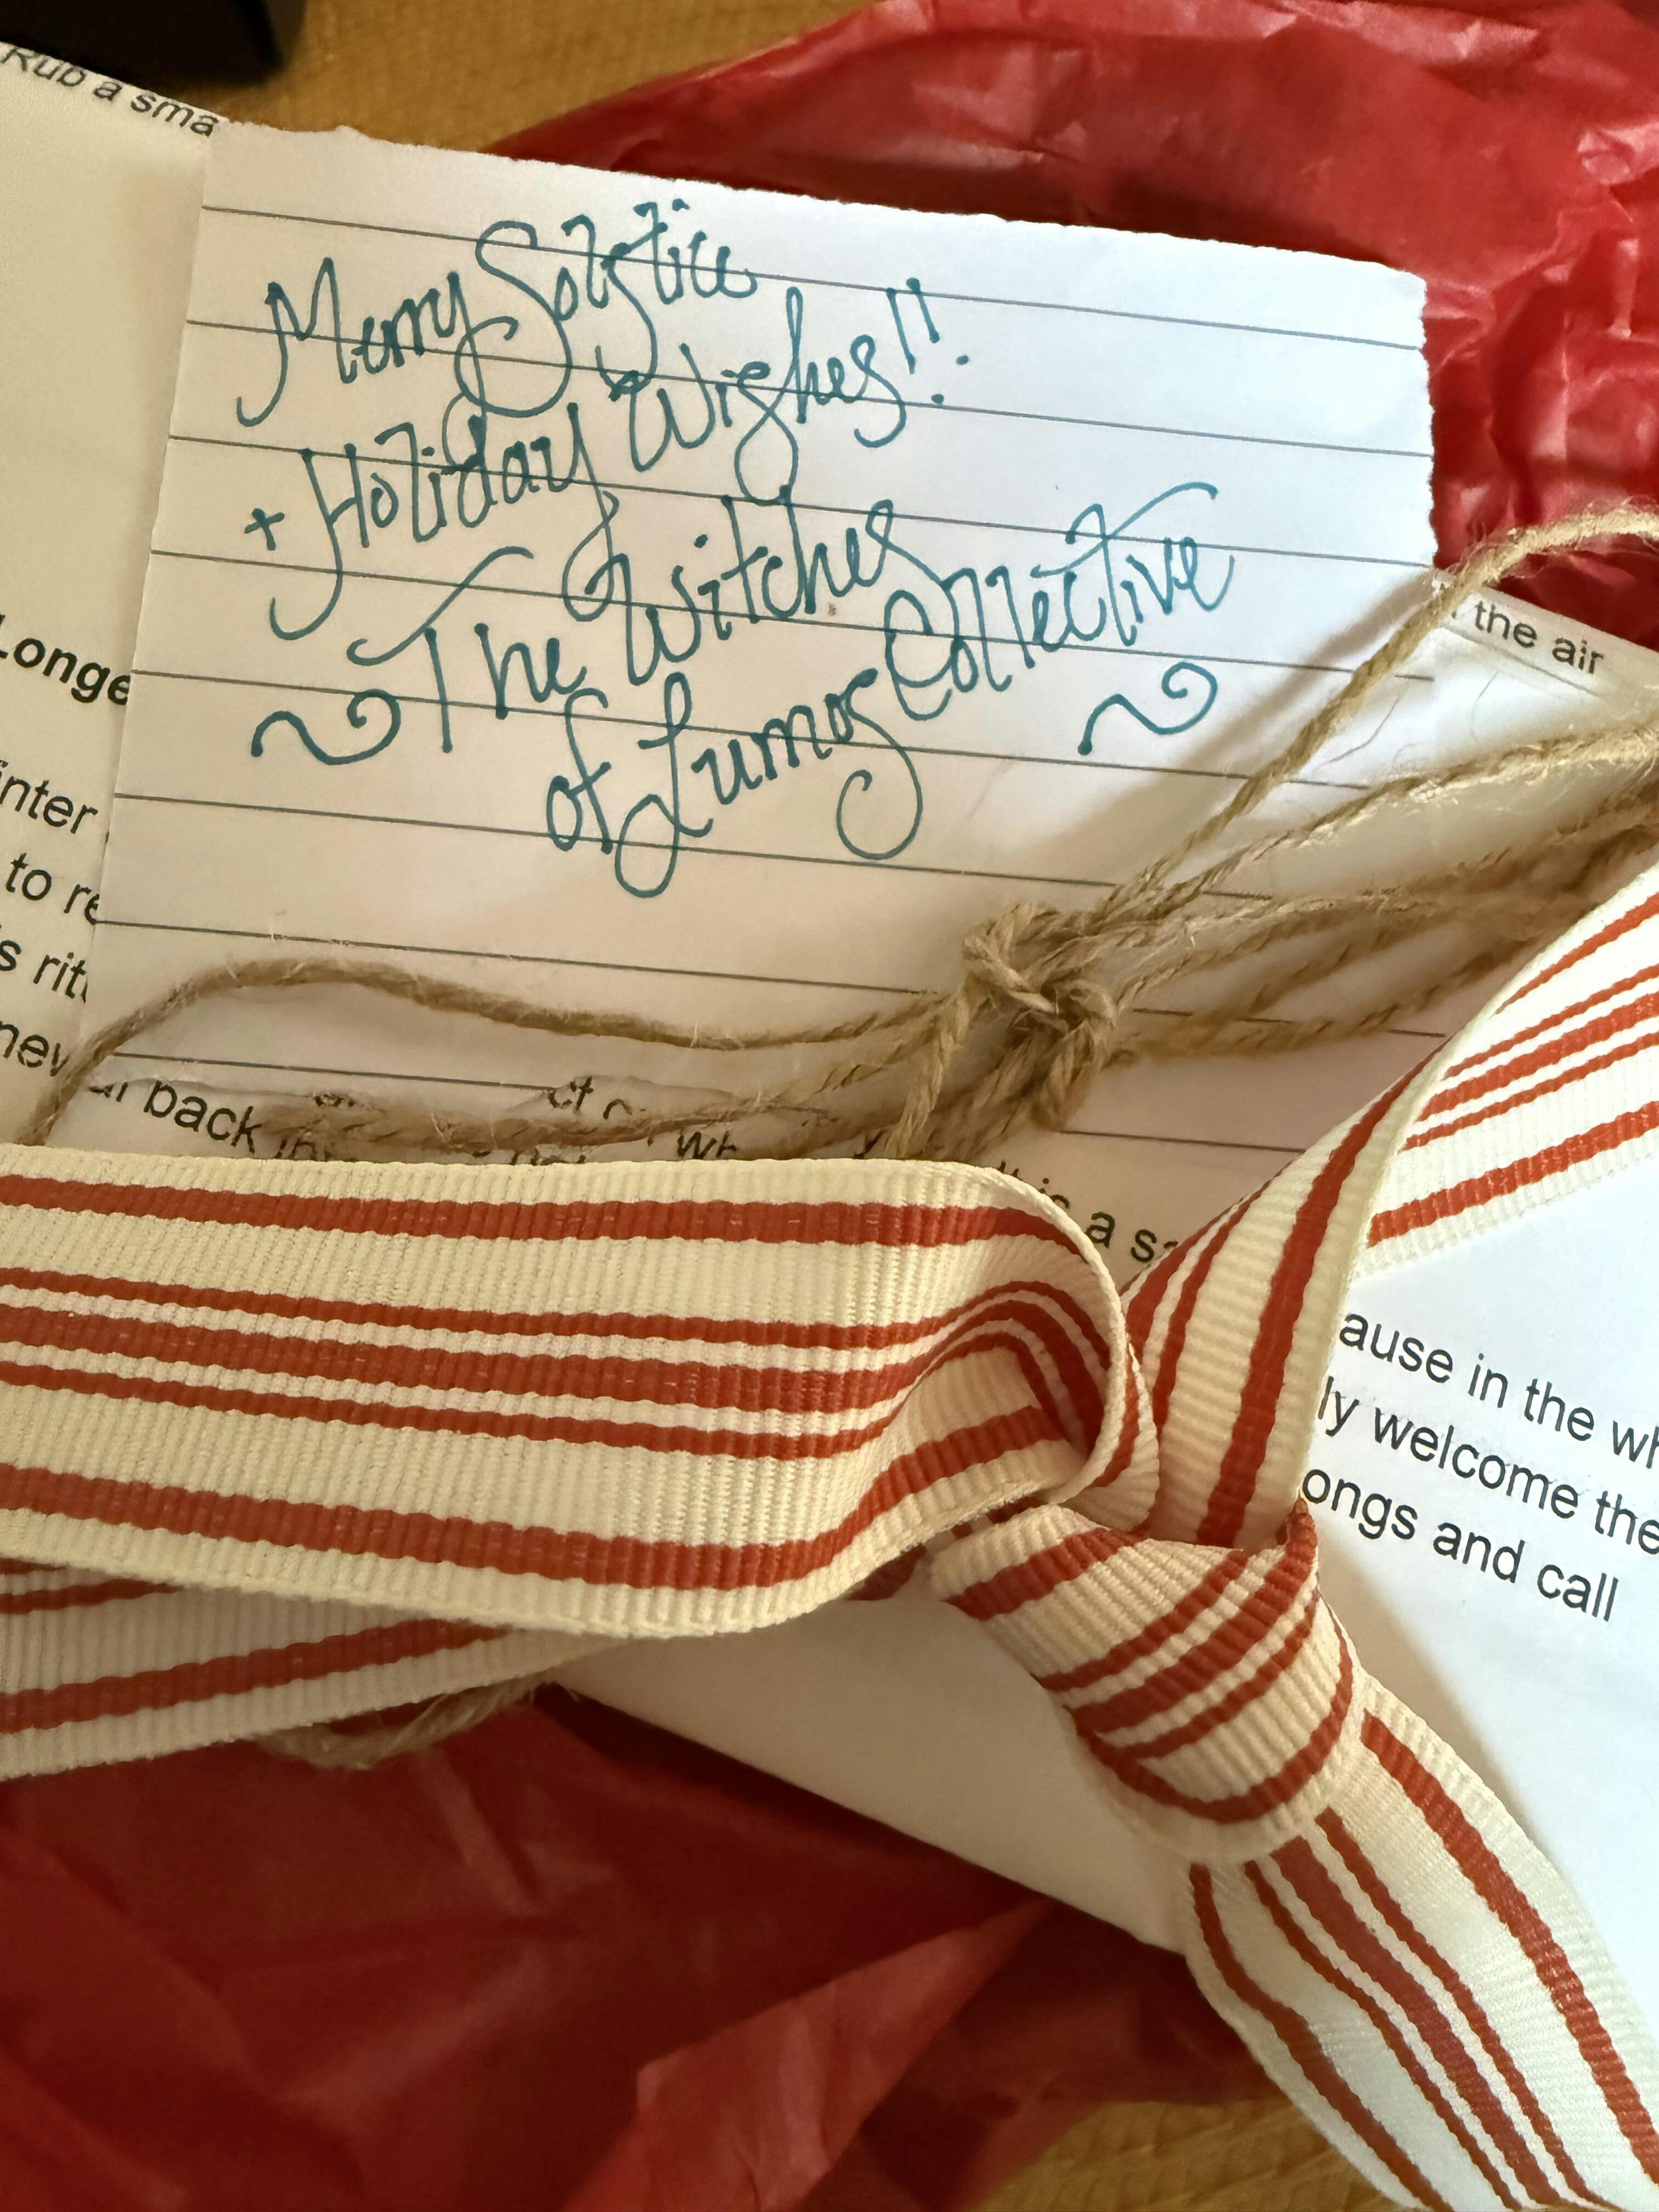 Rub a sma
Merry Solstice
+ Holiday Wishes!!
~ The Witches
of Lumos Collective ~
the air
Longe
inter
to re
s ritu
new
back
a s
ause in the wh
ly welcome the
ongs and call